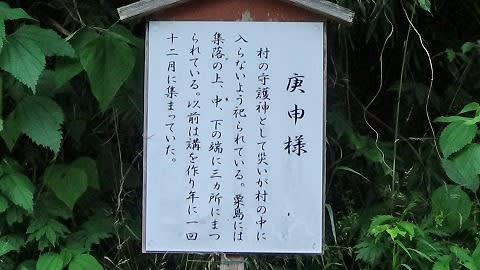 庚申様
村の守護神として災いが村の中に
入らないよう祀られている。粟島には
集落の上、中、下の端に三カ所にまつ
られている。以前は講を作り年に一回
十二月に集まっていた。